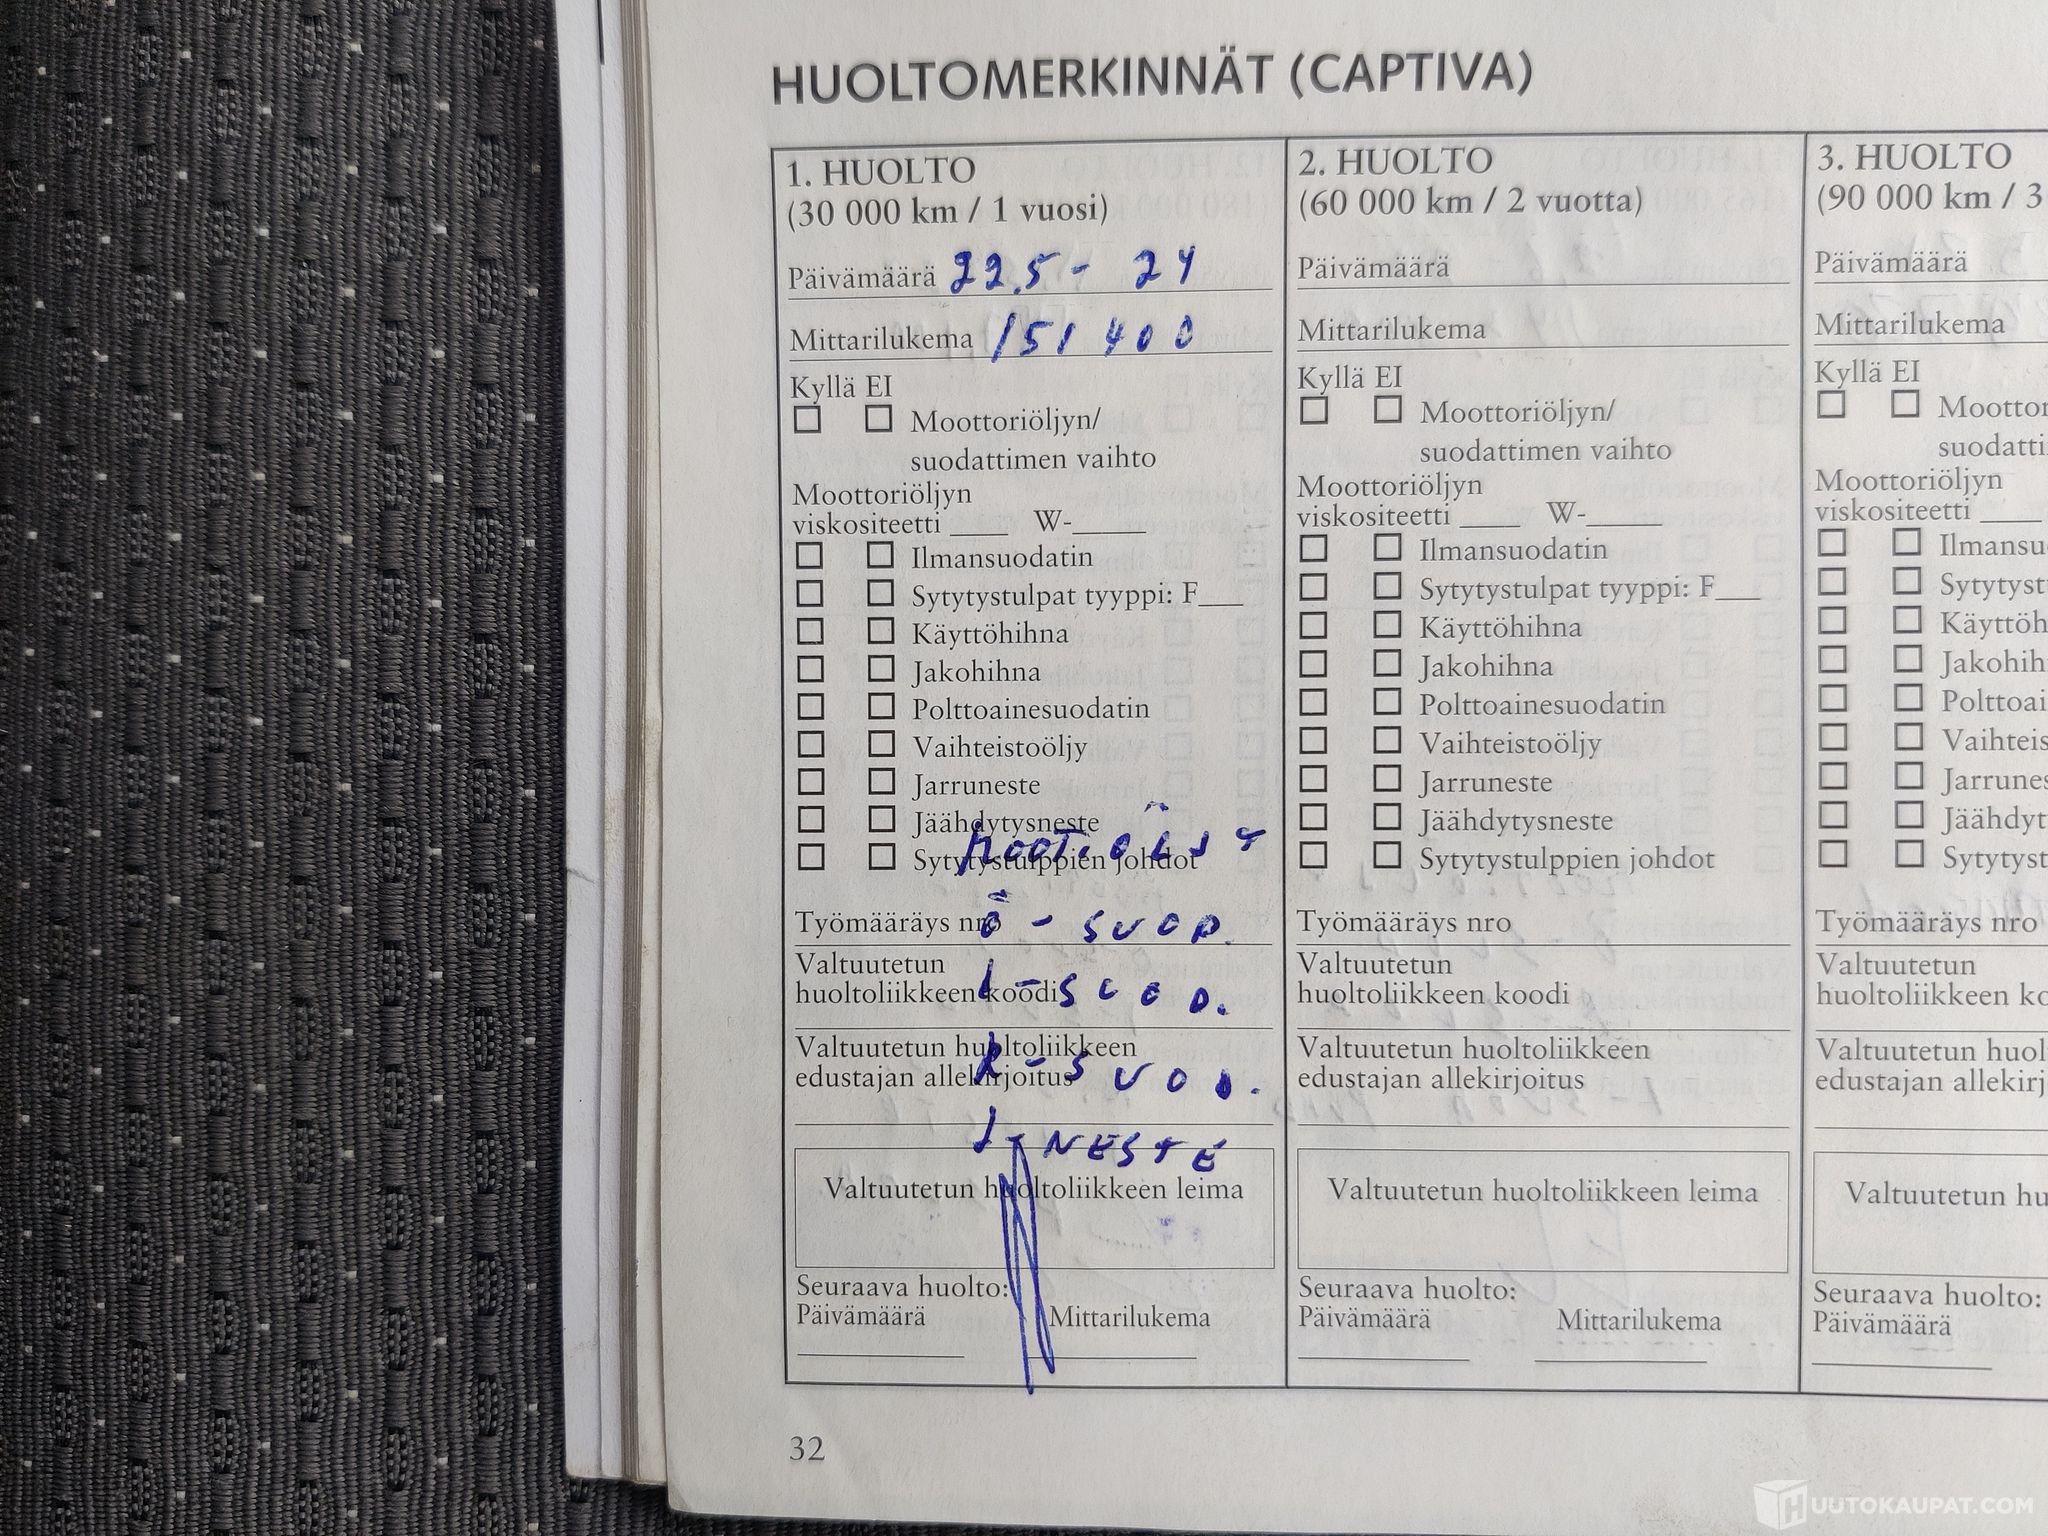 HUOLTOMERKINNÄT (CAPTIVA)
1. HUOLTO
(30 000 km / 1 vuosi)
Päivämäärä 22.5 - 24
Mittarilukema 151 400
Kyllä EI
Moottoriöljyn/
suodattimen vaihto
Moottoriöljyn
viskositeetti ____ W-_____
Ilmansuodatin
Sytytystulpat tyyppi: F___
Käyttöhihna
Jakohihna
Polttoainesuodatin
Vaihteistoöljy
Jarruneste
Jäähdytysneste
Sytytystulppien johdot
Työmääräys nro
Ö - SUOD.
Valtuutetun
huoltoliikkeen koodi
I - SUOD.
Valtuutetun huoltoliikkeen
edustajan allekirjoitus
R - SUOD.
J - NESTE
Valtuutetun huoltoliikkeen leima
Seuraava huolto:
Päivämäärä Mittarilukema
2. HUOLTO
(60 000 km / 2 vuotta)
Päivämäärä
Mittarilukema
Kyllä EI
Moottoriöljyn/
suodattimen vaihto
Moottoriöljyn
viskositeetti ____ W-_____
Ilmansuodatin
Sytytystulpat tyyppi: F___
Käyttöhihna
Jakohihna
Polttoainesuodatin
Vaihteistoöljy
Jarruneste
Jäähdytysneste
Sytytystulppien johdot
Työmääräys nro
Valtuutetun
huoltoliikkeen koodi
Valtuutetun huoltoliikkeen
edustajan allekirjoitus
Valtuutetun huoltoliikkeen leima
Seuraava huolto:
Päivämäärä Mittarilukema
3. HUOLTO
(90 000 km / 3
Päivämäärä
Mittarilukema
Kyllä EI
Moottor
suodatti
Moottoriöljyn
viskositeetti ____
Ilmansu
Sytytyst
Käyttöh
Jakohih
Polttoai
Vaihteis
Jarrunes
Jäähdyt
Sytytyst
Työmääräys nro
Valtuutetun
huoltoliikkeen ko
Valtuutetun huol
edustajan allekirj
Valtuutetun hu
Seuraava huolto:
Päivämäärä
32
HUUTOKAUPAT.COM